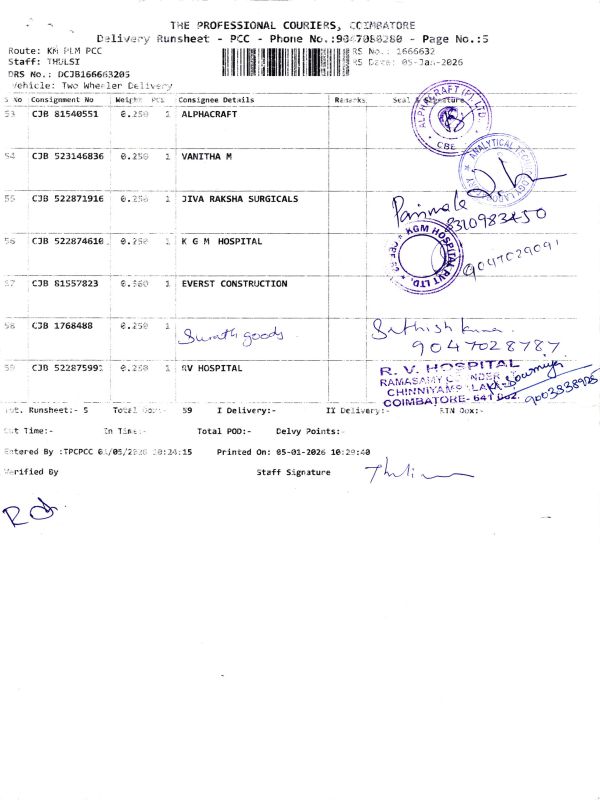 THE PROFESSIONAL COURIERS, COIMBATORE
Delivery Runsheet - PCC - Phone No.:9047080280 - Page No.:5
Route: KM PLM PCC
RS No.: 1666632
Staff: THULSI
RS Date: 05-Jan-2026
DRS No.: DCJB166663205
Vehicle: Two Wheeler Delivery
S No Consignment No Weight Pcs Consignee Details Remarks Seal & Signature
53 CJB 81540551 0.250 1 ALPHACRAFT
ALPHACRAFT (P) LTD. CBE
54 CJB 523146836 0.250 1 VANITHA M
ANALYTICAL
55 CJB 522871916 0.250 1 JIVA RAKSHA SURGICALS
8310983450
56 CJB 522874610 0.250 1 K G M HOSPITAL
KGM HOSPITAL PVT LTD.
9047029091
57 CJB 81557823 0.960 1 EVERST CONSTRUCTION
58 CJB 1768488 0.250 1 Surath goods
Sathish kumar
9047028787
59 CJB 522875991 0.250 1 RV HOSPITAL
R. V. HOSPITAL
COIMBATORE- 641 062.
Tot. Runsheet:- 5 Total Dox:- 59 I Delivery:- II Delivery:- RTN Dox:-
Out Time:- In Time:- Total POD:- Delvy Points:-
Entered By :TPCPCC 01/05/2026 10:24:15 Printed On: 05-01-2026 10:29:40
Verified By Staff Signature